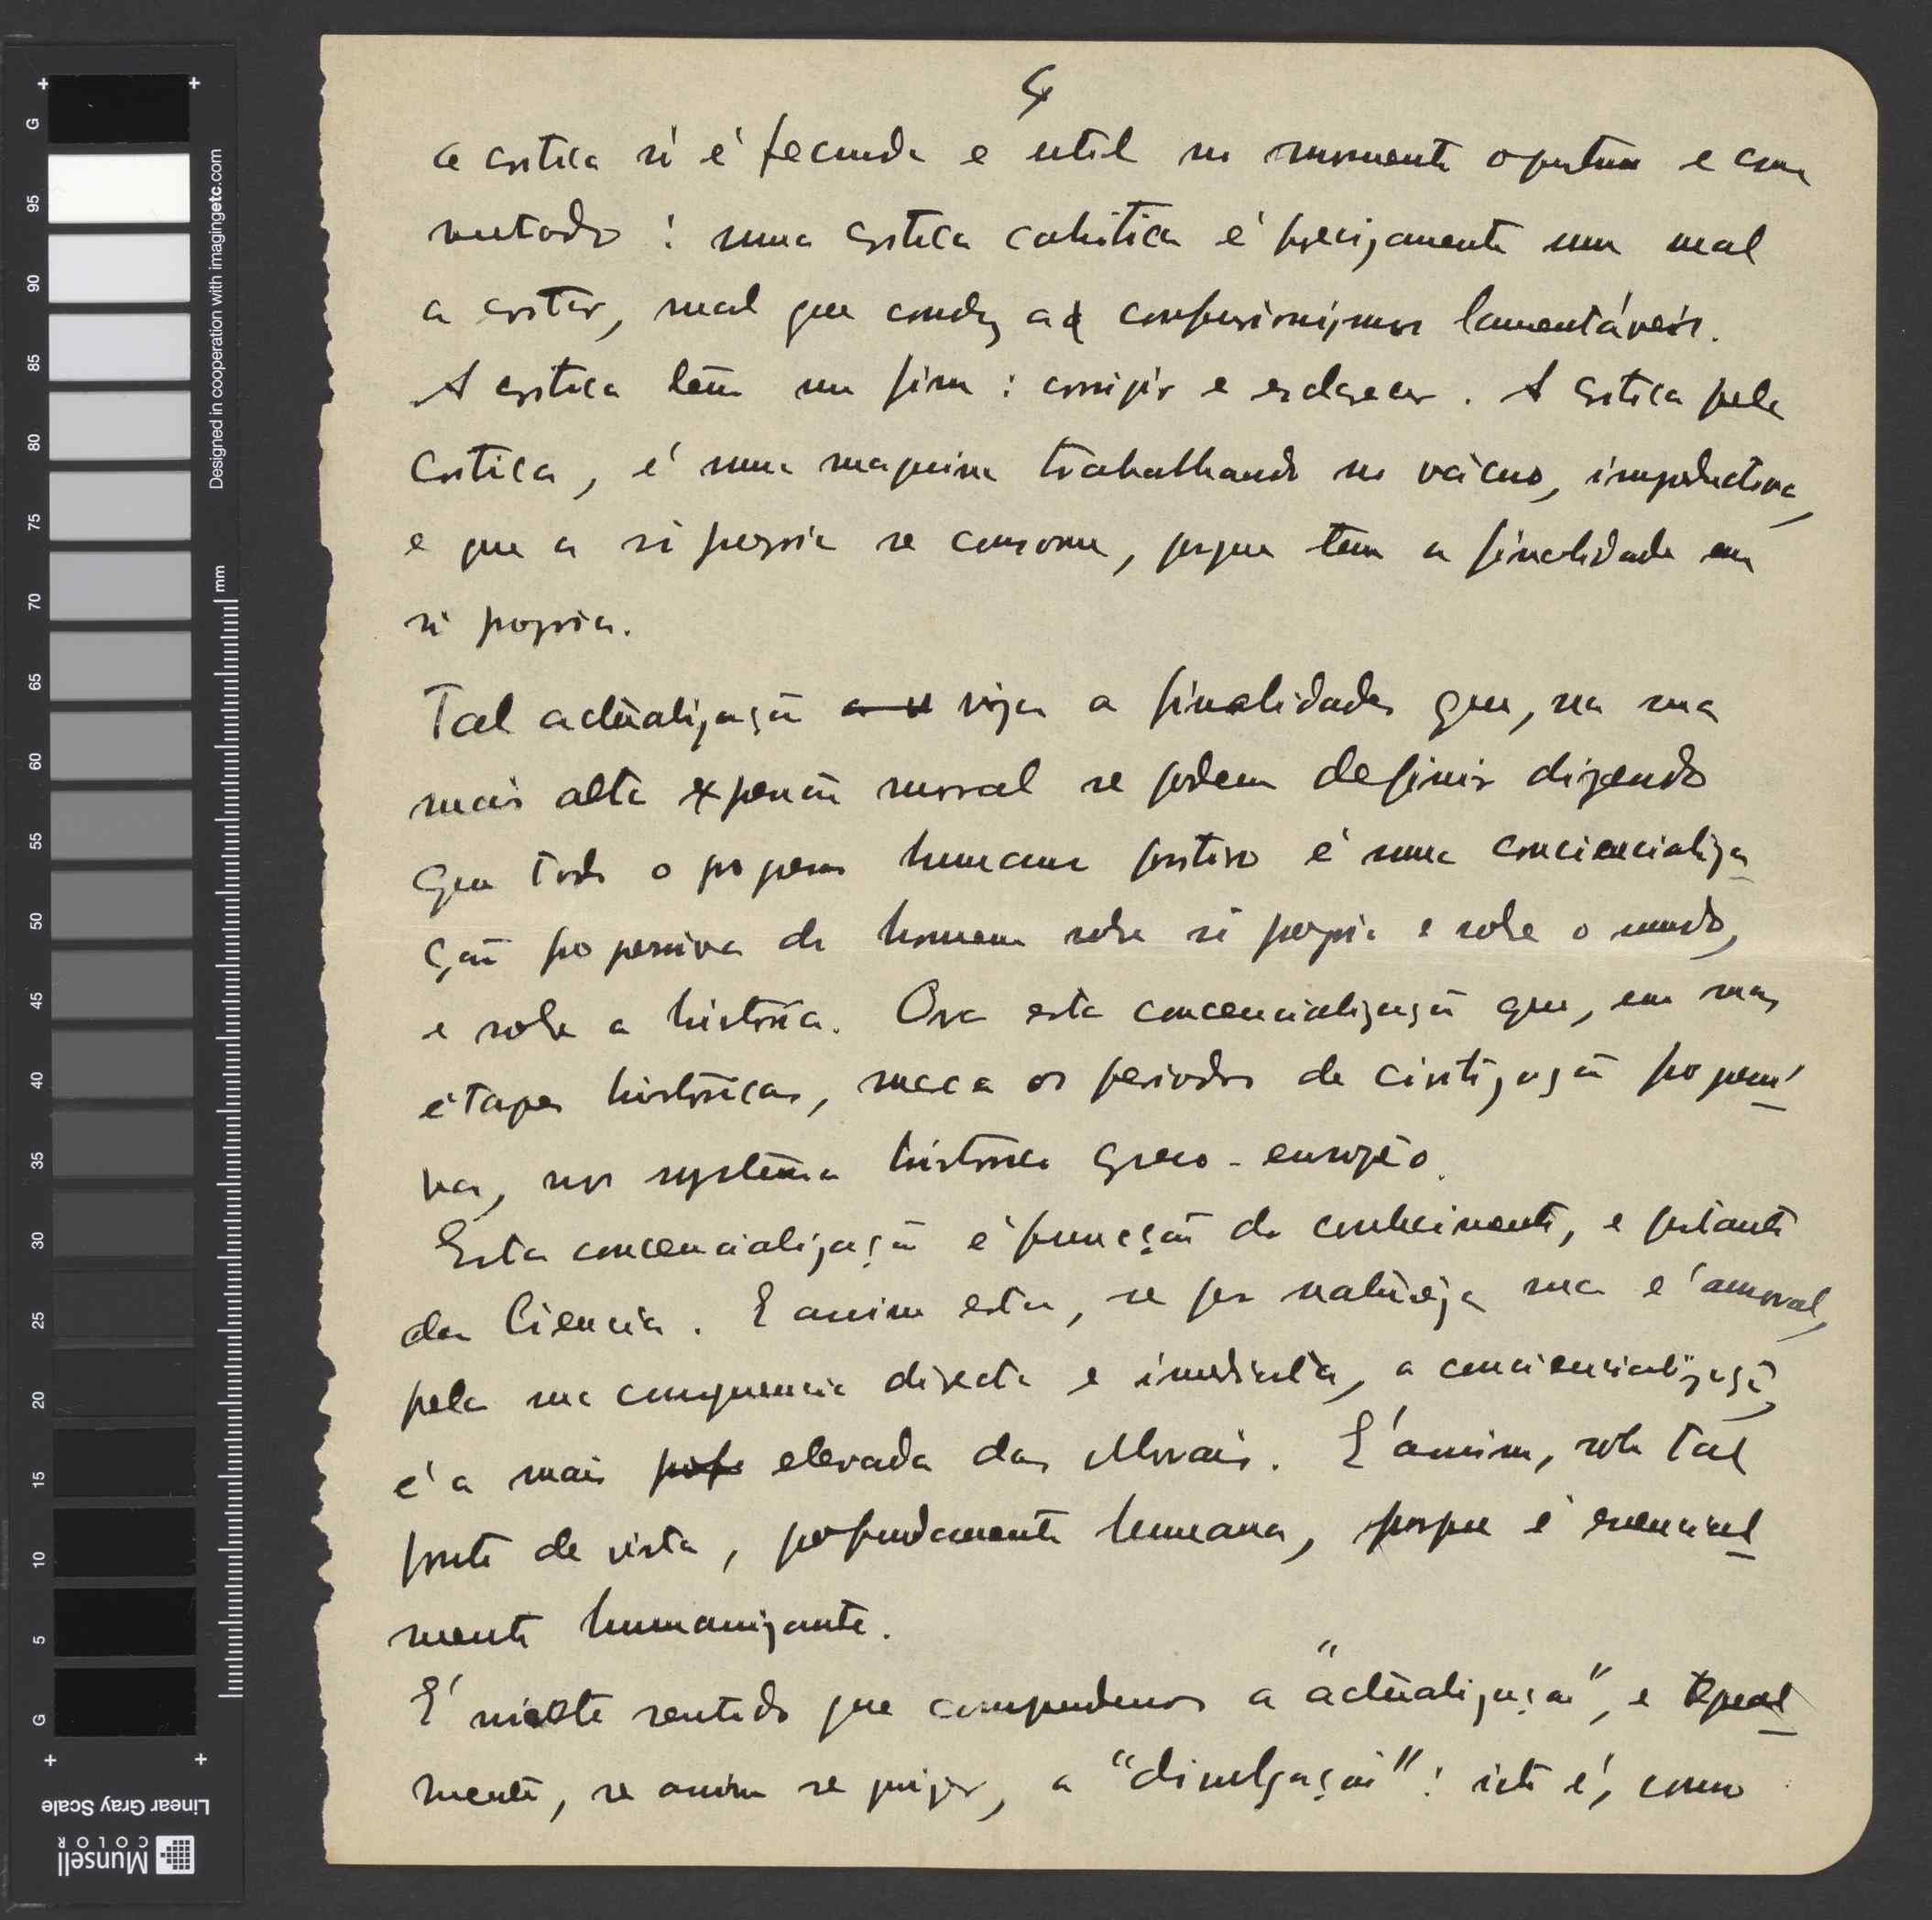 4
a critica só é fecunda e util no momento oportuno e com
metodo : uma critica caótica é precizamente um mal
a evitar, mal que conduz a confusionismos lamentáveis.
A critica tem um fim : corrigir e esclarecer. A critica pela
critica, é uma maquina trabalhando no vácuo, improductiva,
e que a si propria se consome, porque tem a finalidade em
si propria.
Tal actualização viza a finalidades que, na sua
mais alta expressão moral se podem definir dizendo
que todo o progresso humano positivo é uma conciencializa-
ção progressiva do homem sobre si proprio e sobre o mundo,
e sobre a história. Ora esta concencialização que, em suas
étapes históricas, marca os periodos de civilização progressi-
va, nos systema histórico greco-europêo.
Esta concencialização é função do conhecimento, e portanto
da Ciencia. E assim esta, se por natureza sua é amoral,
pela sua consequencia directa e imediata, a conciencialização,
é a mais elevada das Morais. É assim, sob tal
ponto de vista, profundamente humana, porque é essencial-
mente humanizante.
É nieste sentido que compreendemos a "actualização", e igual-
mente, se assim se quizer, a "divulgação" : isto é, como
Designed in cooperation with imagingetc.com
mm
G 95 90 85 80 75 70 65 60 55 50 45 40 35 30 25 20 15 10 5 G
Linear Gray Scale
Munsell
COLOR